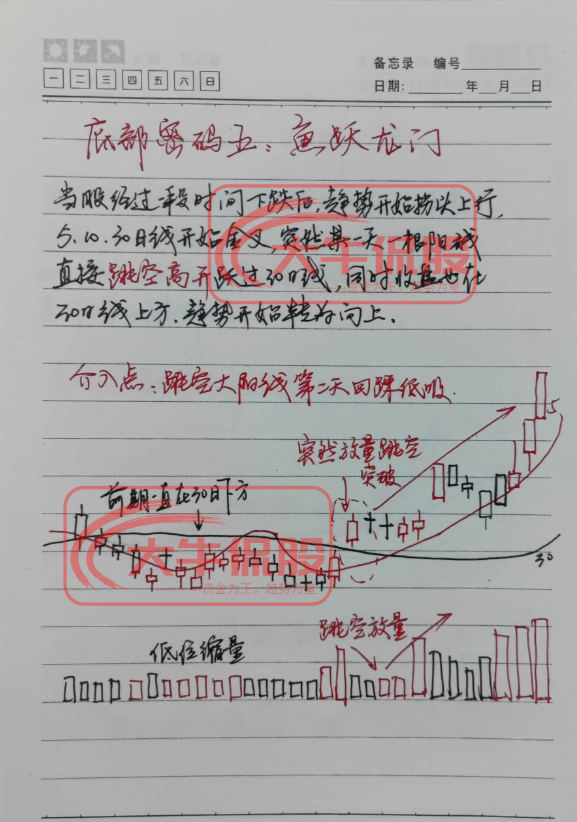 一 二 三 四 五 六 日
备忘录 编号
日期: 年 月 日
底部密码五:鱼跃龙门
当股经过一段时间下跌后,趋势开始拐头上行,
5.10.30日线开始金叉,突然某一天一根阳线
直接跳空高开跃过30日线,同时收盘也在
30日线上方.趋势开始转为向上.
大牛保股
介入点:跳空大阳线第二天回踩低吸.
突然放量跳空
突破
5
前期一直在30日下方
30
大牛保股
资金为王,趋势为量
跳空放量
低位缩量